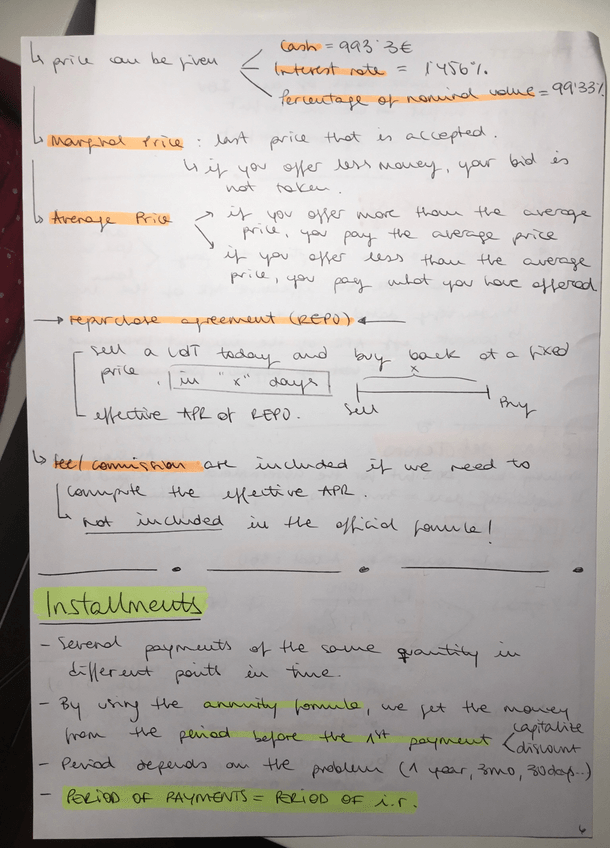 ↳ price can be given
Cash = 993'3€
Interest rate = 1'456%
Percentage of nominal value = 99'33%
↳ Marginal Price : last price that is accepted.
↳ if you offer less money, your bid is
not taken.
↳ Average Price → if you offer more than the average
price, you pay the average price
→ if you offer less than the average
price, you pay what you have offered
→ repurchase agreement (REPO) ←
sell a LOT today and buy back at a fixed
price. in "x" days
x
Sell Buy
effective APR of REPO.
↳ Fee/commission are included if we need to
compute the effective APR.
↳ Not included in the official formula!
Installments
- Several payments of the same quantity in
different points in time.
- By using the annuity formula, we get the money
from the period before the 1st payment < capitalize
discount
- Period depends on the problem (1 year, 3mo, 30days..)
- PERIOD OF PAYMENTS = PERIOD OF i.r.
6